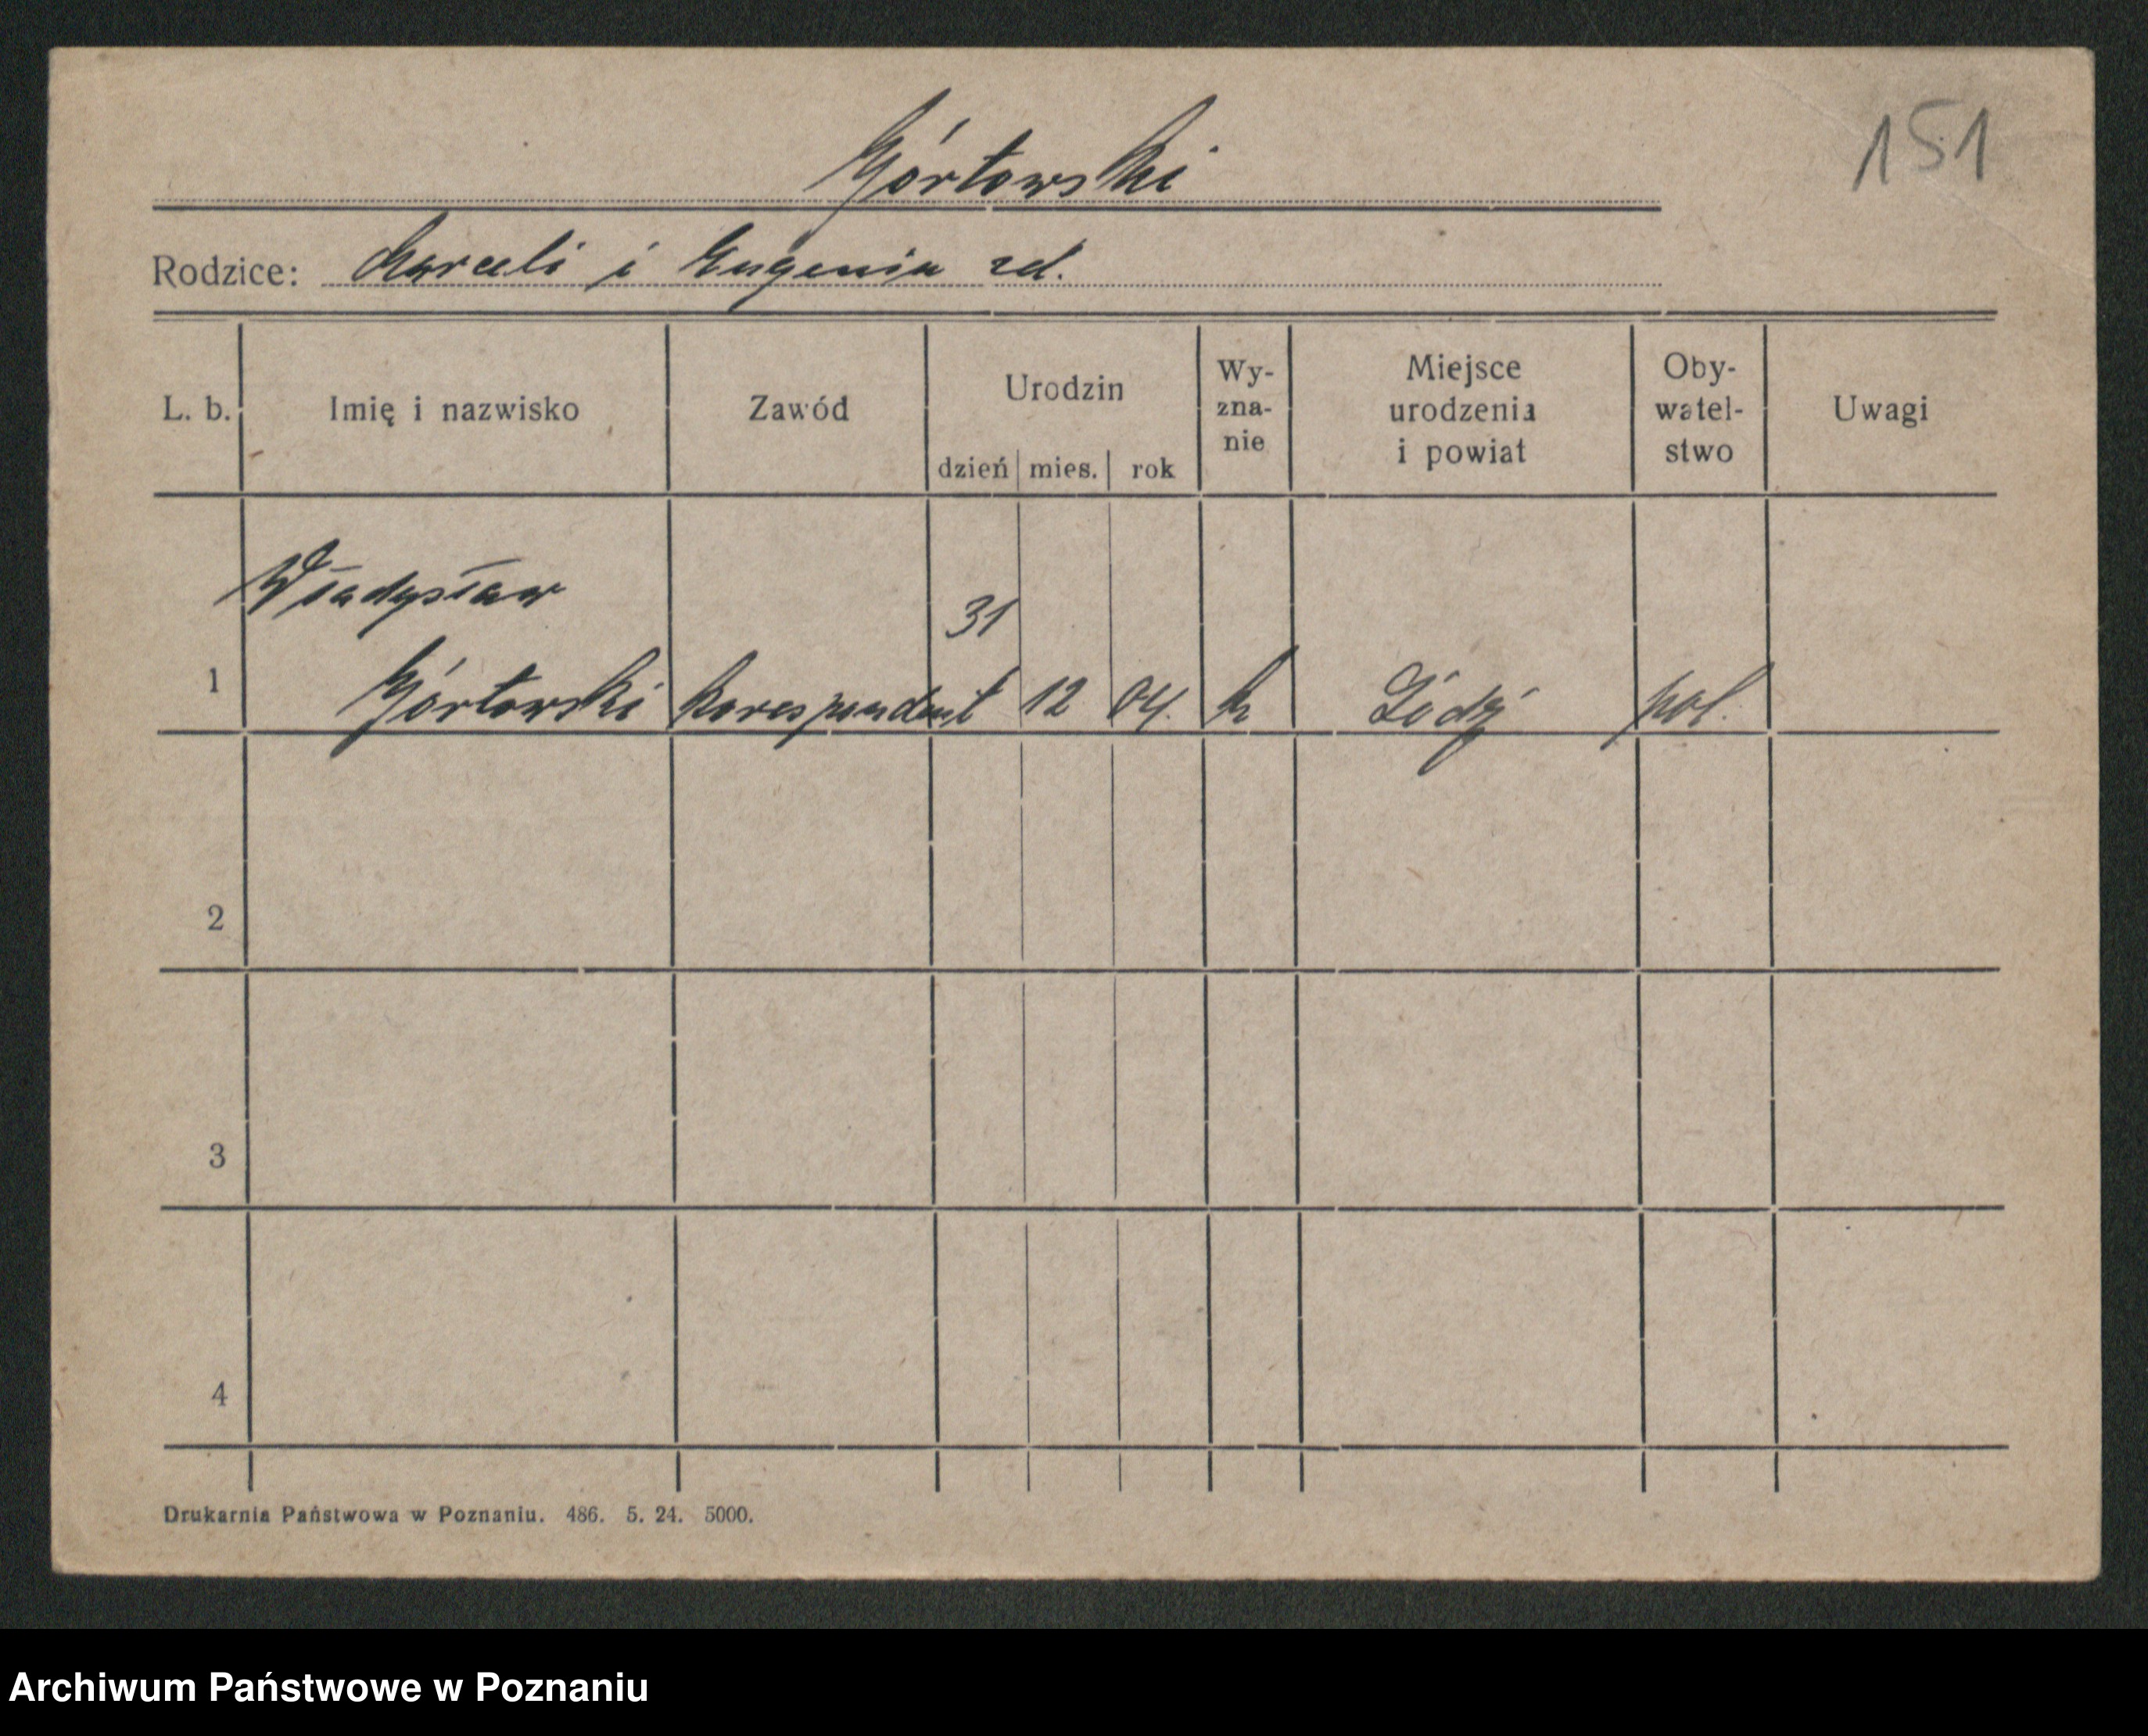 151
Górtowski
Rodzice: Marceli i Eugenia zd.
L. b. Imię i nazwisko Zawód Urodzin dzień mies. rok Wy-zna-nie Miejsce urodzenia i powiat Oby-watel-stwo Uwagi
Władysław
31
1 Górtowski korespondent 12 04. k Łódź pol.
2
3
4
Drukarnia Państwowa w Poznaniu. 486. 5. 24. 5000.
Archiwum Państwowe w Poznaniu